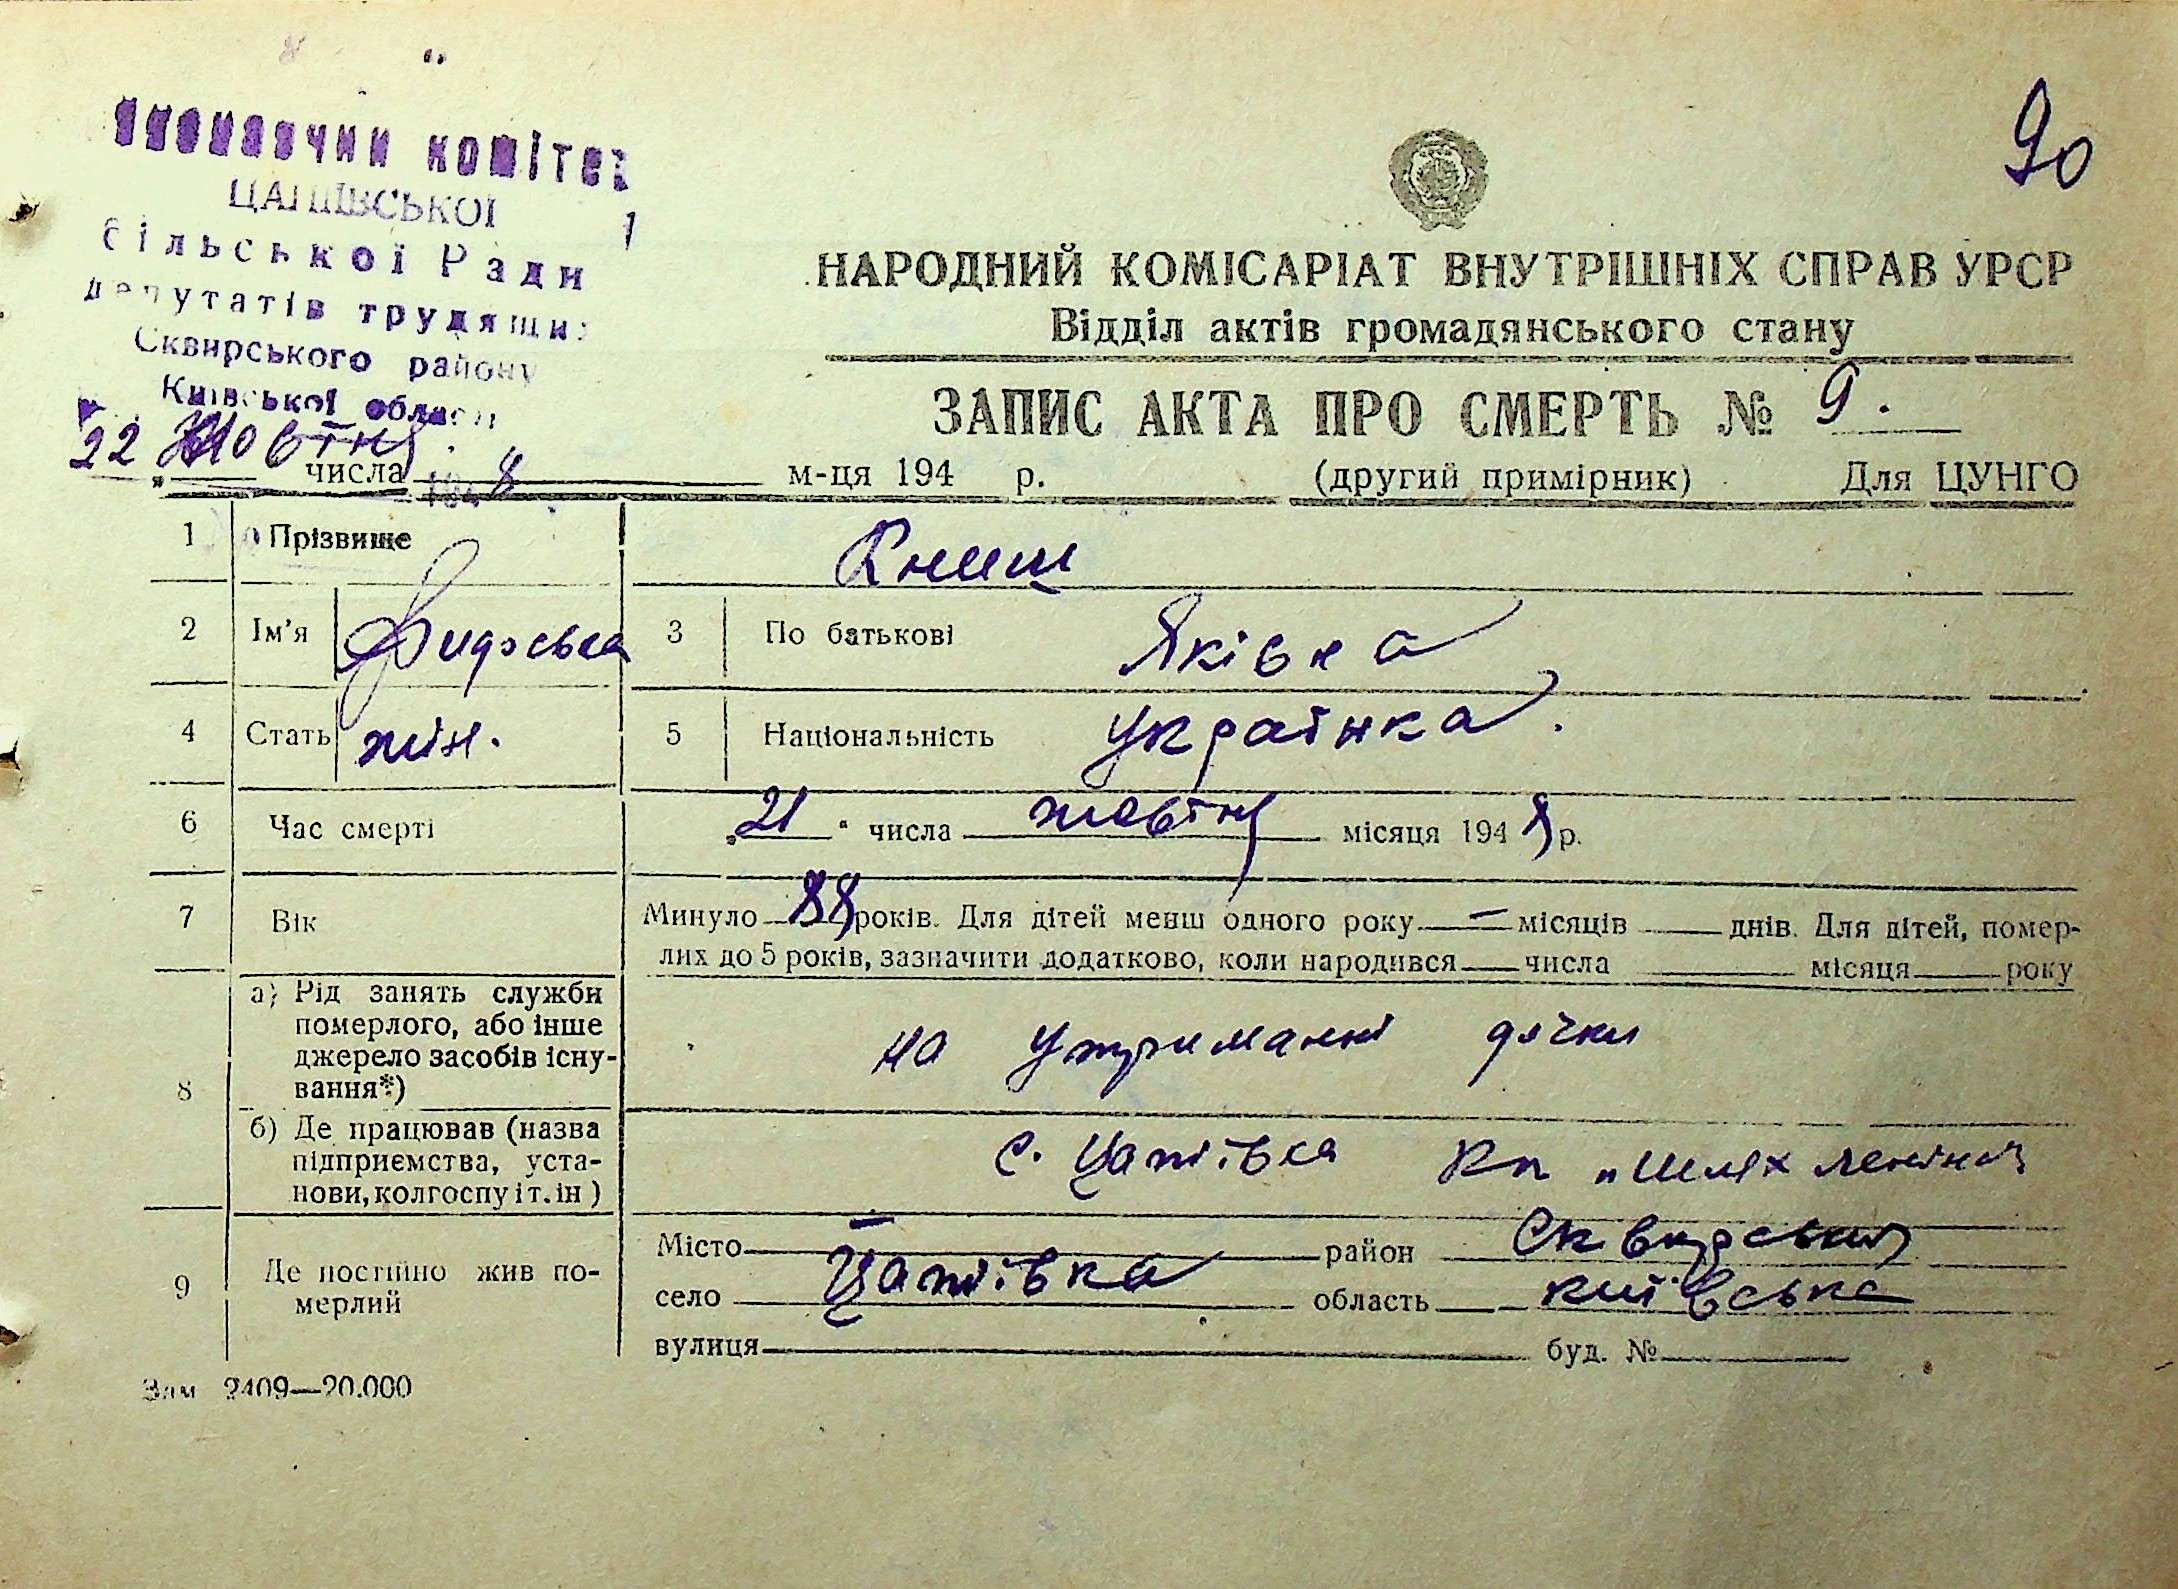 90
виконавчий комітет
ЦАПІЇВСЬКОЇ
сільської Ради
депутатів трудящих
Сквирського району
Київської області
НАРОДНИЙ КОМІСАРІАТ ВНУТРІШНІХ СПРАВ УРСР
Відділ актів громадянського стану
ЗАПИС АКТА ПРО СМЕРТЬ № 9.
22 Жовтня числа 1948 м-ця 194 р. (другий примірник) Для ЦУНГО
1 Прізвище Книш
2 Ім'я 3 По батькові Яківна
4 Стать жін. 5 Національність Українка.
6 Час смерті „21" числа жовтня місяця 1948 р.
7 Вік Минуло 88 років. Для дітей менш одного року — місяців днів. Для дітей, помер-
лих до 5 років, зазначити додатково, коли народився числа місяця року
8 а) Рід занять служби
померлого, або інше
джерело засобів існу-
вання*) на утриманні дочки
б) Де працював (назва
підприємства, уста-
нови, колгоспу і т. ін) с. Цапіївка Кп „Шлях Леніна"
9 Де постійно жив по-
мерлий
Місто — район Сквирський
село Цапіївка область київська
вулиця буд. №
Зам 2409—20.000